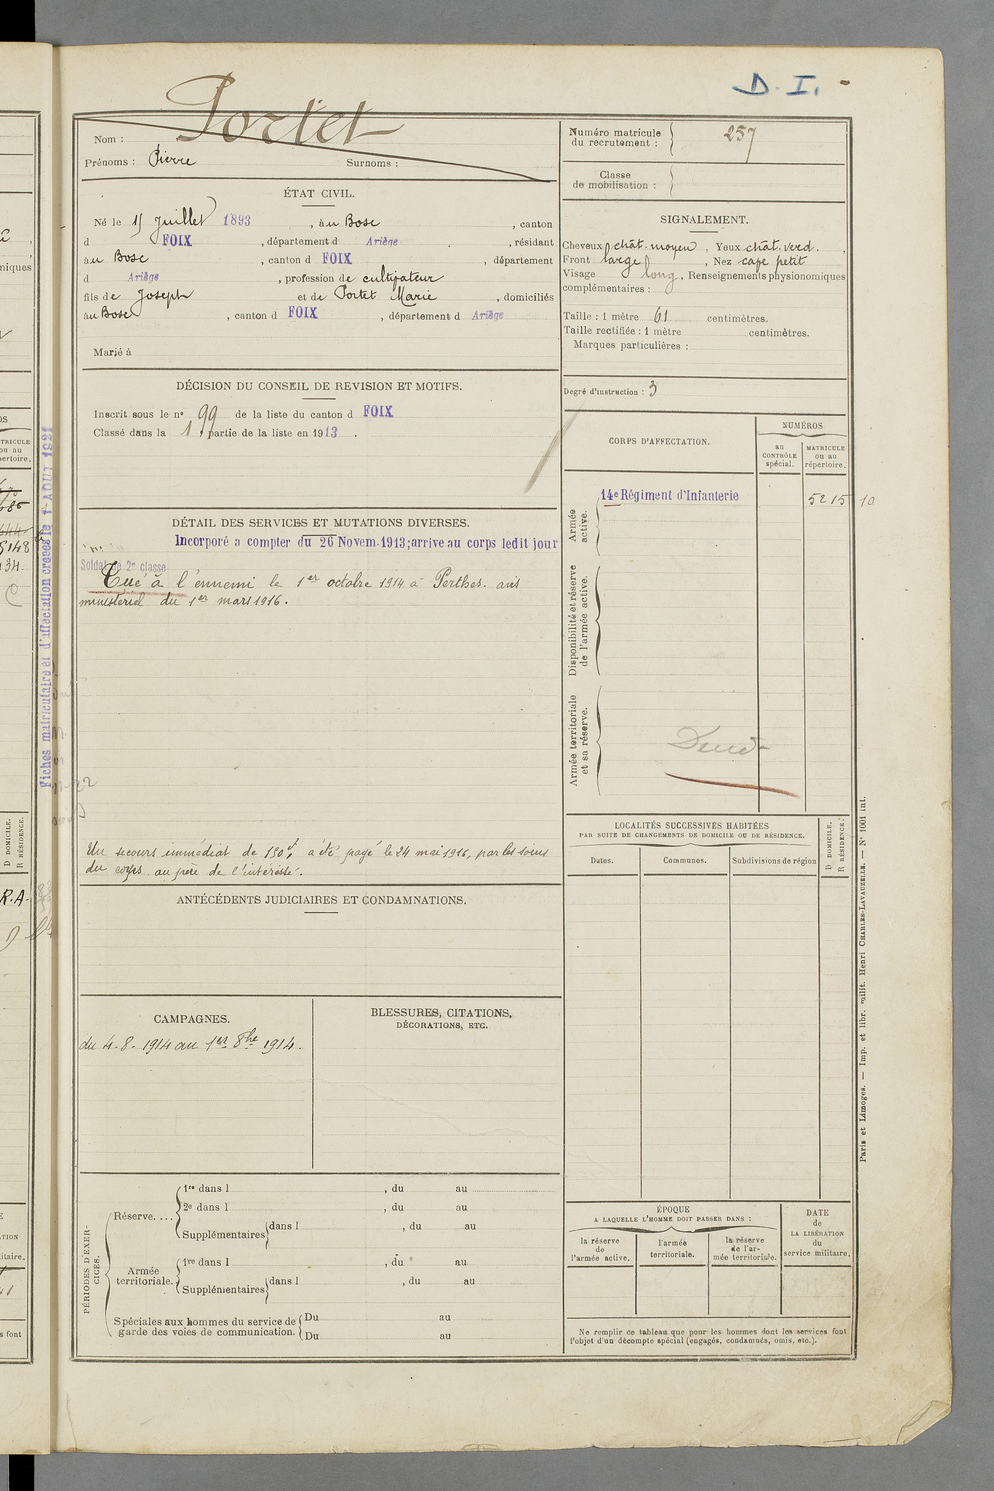 D. I.
Portet
Nom :
Prénoms : Pierre Surnoms :
ÉTAT CIVIL.
Né le 15 Juillet 1893, à au Bosc, canton
d FOIX, département d Ariège, résidant
à au Bosc, canton d FOIX, département
d Ariège, profession de cultivateur
fils de Joseph et de Portet Marie, domiciliés
à au Bosc, canton d FOIX, département d Ariège
Marié à
DÉCISION DU CONSEIL DE REVISION ET MOTIFS.
Inscrit sous le n° 99 de la liste du canton d FOIX
Classé dans la 1 partie de la liste en 1913.
DÉTAIL DES SERVICES ET MUTATIONS DIVERSES.
Incorporé a compter du 26 Novem. 1913; arrive au corps ledit jour
Soldat de 2e classe
Tué à l'ennemi le 1er octobre 1914 à Perthes. avis
ministériel du 1er mars 1916.
Un secours immédiat de 150f, a été payé le 24 mai 1916, par les soins
du corps au père de l'intéressé.
ANTÉCÉDENTS JUDICIAIRES ET CONDAMNATIONS.
CAMPAGNES.
du 4-8-1914 au 1er 8bre 1914.
BLESSURES, CITATIONS,
DÉCORATIONS, ETC.
PÉRIODES D'EXER-
CICES.
Réserve....
1re dans l , du au
2e dans l , du au
Supplémentaires dans l , du au
Armée
territoriale.
1re dans l , du au
Supplémentaires dans l , du au
Spéciales aux hommes du service de
garde des voies de communication.
Du au
Du au
Numéro matricule
du recrutement : 257
Classe
de mobilisation :
SIGNALEMENT.
Cheveux chât. moyen, Yeux chât. verd.,
Front large, Nez cave petit
Visage long, Renseignements physionomiques
complémentaires :
Taille : 1 mètre 61 centimètres.
Taille rectifiée : 1 mètre centimètres.
Marques particulières :
Degré d'instruction : 3
CORPS D'AFFECTATION.
NUMÉROS
au
CONTRÔLE
spécial.
MATRICULE
ou au
répertoire.
Armée
active.
14e Régiment d'Infanterie 5215 10
Disponibilité et réserve
de l'armée active.
Armée territoriale
et sa réserve.
LOCALITÉS SUCCESSIVES HABITÉES
PAR SUITE DE CHANGEMENTS DE DOMICILE OU DE RÉSIDENCE.
Dates.
Communes.
Subdivisions de région
D DOMICILE.
R RÉSIDENCE.
ÉPOQUE
A LAQUELLE L'HOMME DOIT PASSER DANS :
la réserve
de
l'armée active.
l'armée
territoriale.
la réserve
de l'ar-
mée territoriale.
DATE
de
LA LIBÉRATION
du
service militaire.
Ne remplir ce tableau que pour les hommes dont les services font
l'objet d'un décompte spécial (engagés, condamnés, omis, etc.).
Paris et Limoges. — Imp. et libr. milit. Henri CHARLES-LAVAUZELLE. — N° 1001 int.
Fiches matriculaire et d'affectation creees le 1 AOUT 1921
niques
TRICULE
ou au
pertoire.
D DOMICILE.
R RÉSIDENCE.
R.A.
s font